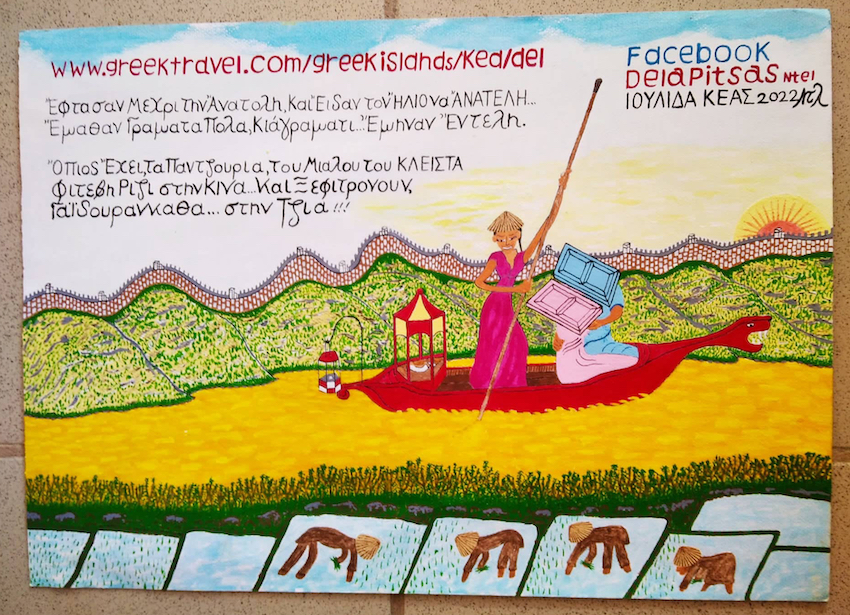 www.greektravel.com/greekislands/kea/del
Facebook
DelaPitsas Ntel
ΙΟΥΛΙΔΑ ΚΕΑΣ 2022
Έφτασαν Μεχρι την Άνατολη, Και Είδαν τον ΉΛΙΟ να ΆΝΑΤΕΛΗ...
Έμαθαν Γραματα Πολα, Κι άγραματι... Έμηναν Έντελη.
Όπιος Έχει, τα Παντζουρια, του Μιαλου του ΚΛΕΙΣΤΑ
Φιτεβη Ριζι στην Κινα... Και Ξεφιτρονουν,
Γαϊδουρανκαθα... στην Τζια!!!